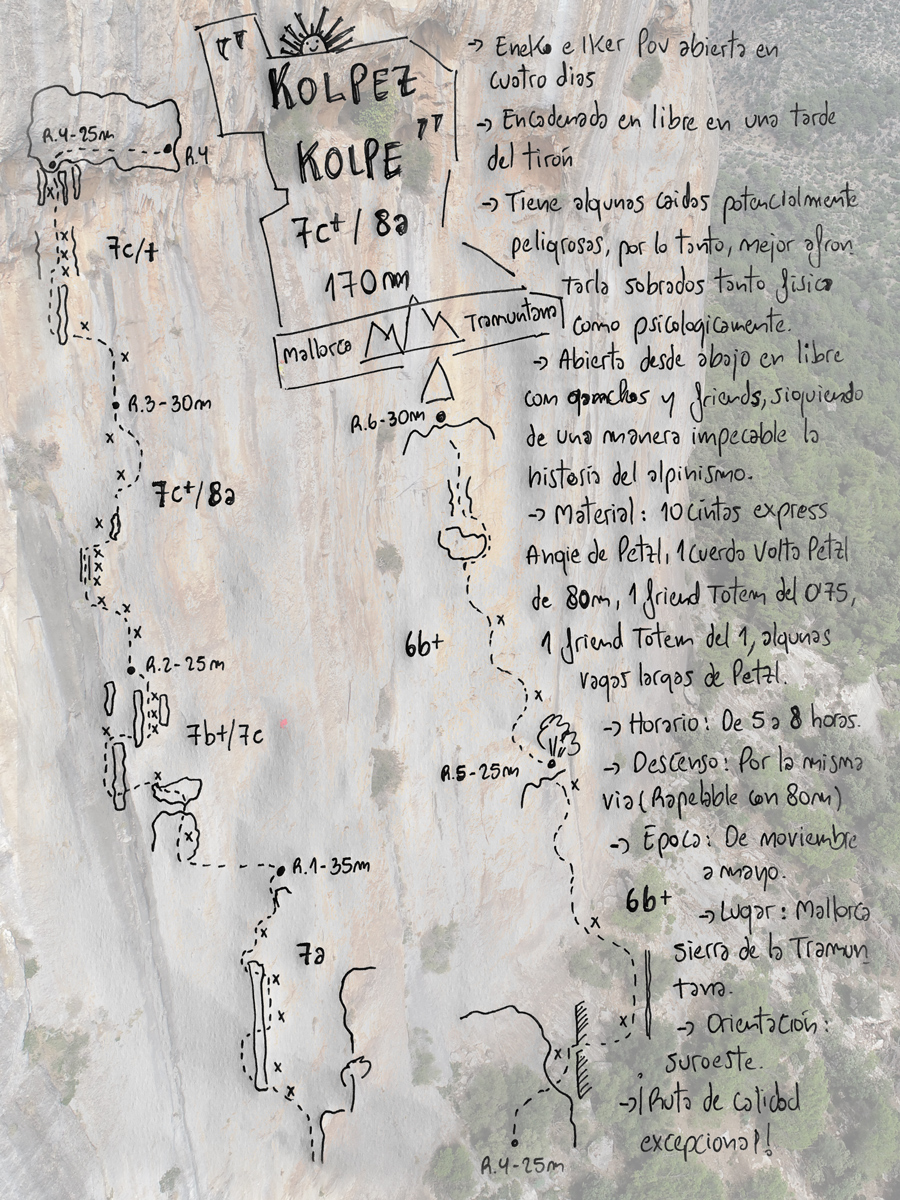 "KOLPEZ
KOLPE"
7c+/8a
170m
Mallorca Tramuntana
R.4-25m
R.4
7c/+
R.3-30m
7c+/8a
R.2-25m
7b+/7c
R.1-35m
7a
R.6-30m
6b+
R.5-25m
6b+
R.4-25m
→ Eneko e Iker Pou abierta en
cuatro dias
→ Encadenada en libre en una tarde
del tirón
→ Tiene algunas caidas potencialmente
peligrosas, por lo tanto, mejor afron
tarla sobrados tanto fisica
como psicologicamente.
→ Abierta desde abajo en libre
con ganchos y friends, siguiendo
de una manera impecable la
historia del alpinismo.
→ Material: 10 cintas express
Angie de Petzl, 1 cuerda Volta Petzl
de 80m, 1 friend Totem del 0'75,
1 friend Totem del 1, algunas
vagas largas de Petzl.
→ Horario: De 5 a 8 horas.
→ Descenso: Por la misma
via (Rapelable con 80m)
→ Epoca: De noviembre
a mayo.
→ Lugar: Mallorca
sierra de la Tramun
tana.
→ Orientación:
suroeste.
→ ¡Ruta de calidad
excepcional!